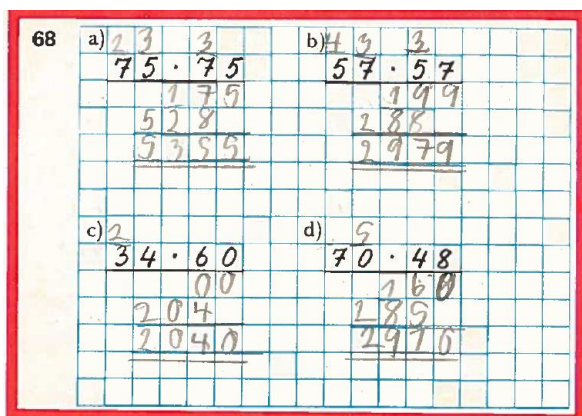 68
a) 2 3 3
75 · 75
175
528
5355
b) 4 3 3
57 · 57
199
288
2979
c) 2
34 · 60
00
204
2040
d) 5
70 · 48
160
285